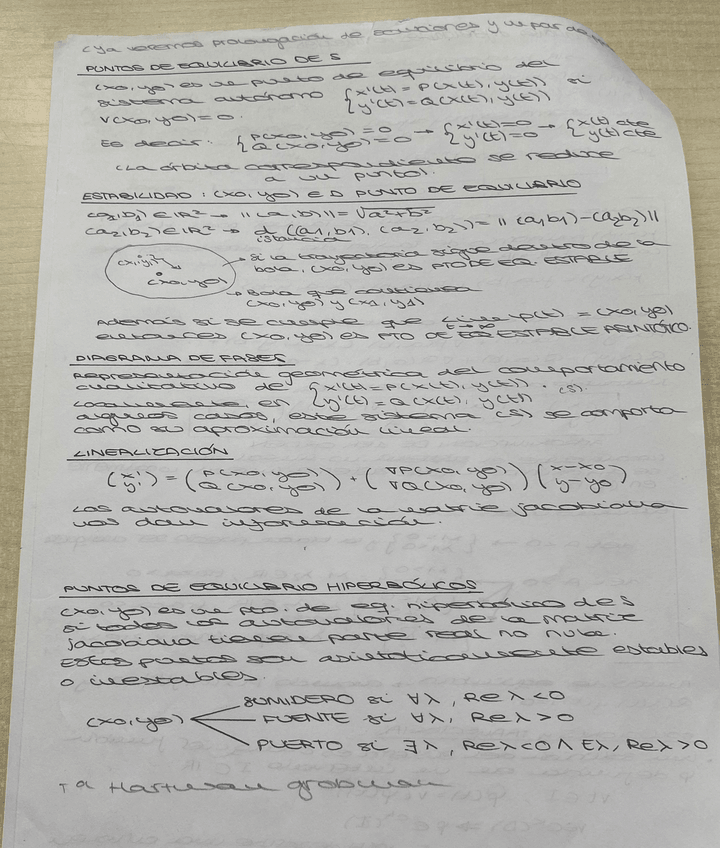 (Ya veremos prolongación de soluciones y un par de
PUNTOS DE EQUILIBRIO DE S
(x0, y0) es un punto de equilibrio del
sistema autónomo { x'(t) = P(x(t), y(t)) si
{ y'(t) = Q(x(t), y(t))
V(x0, y0) = 0.
Es decir: { P(x0, y0) = 0 → { x'(t) = 0 → { x(t) cte
{ Q(x0, y0) = 0 { y'(t) = 0 { y(t) cte
(La órbita correspondiente se reduce
a un punto).
ESTABILIDAD : (x0, y0) ES PUNTO DE EQUILIBRIO
(a1, b1) ∈ IR² → ||(a, b)|| = √a²+b²
(a2, b2) ∈ IR² → d((a1, b1), (a2, b2)) = ||(a1 b1) - (a2 b2)||
istancia
(x1, y1) → Si la trayectoria sigue dentro de la
(x0, y0) bola, (x0, y0) es PTO DE EQ. ESTABLE
↳ Bola que contiene a
(x0, y0) y (x1, y1)
Además si se cumple que Lim φ(t) = (x0, y0)
t→∞
entonces (x0, y0) es PTO DE EQ ESTABLE ASINTÓTICO.
DIAGRAMA DE FASES
Representación geométrica del comportamiento
cualitativo de { x'(t) = P(x(t), y(t)) . (S).
Localmente, en { y'(t) = Q(x(t), y(t))
algunos casos, este sistema (S) se comporta
como su aproximación lineal.
LINEALIZACIÓN
(x' y') = (P(x0, y0) Q(x0, y0)) + (∇P(x0, y0) ∇Q(x0, y0)) (x-x0 y-y0)
Los autovalores de la matriz jacobiana
nos dan información.
PUNTOS DE EQUILIBRIO HIPERBÓLICOS
(x0, y0) es un pto. de eq. hiperbólico de S
si todos los autovalores de la matriz
jacobiana tienen parte real no nula.
Estos puntos son asintóticamente estables
o inestables.
SUMIDERO si ∀λ, Reλ < 0
(x0, y0) FUENTE si ∀λ, Reλ > 0
PUERTO si ∃λ, Reλ < 0 ∧ Eλ, Reλ > 0
Tª Hartman grobman